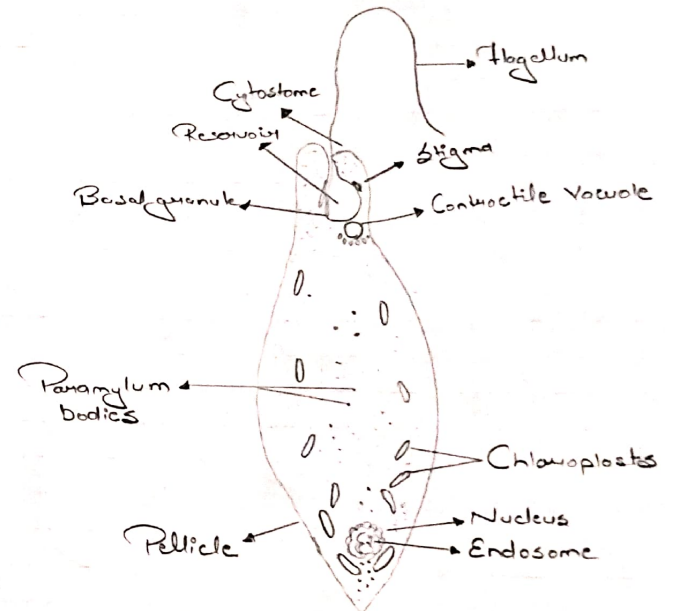 Flagellum
Cytostome
Reservoir
Stigma
Basal granule
Contractile Vacuole
Paramylum
bodies
Chloroplasts
Nucleus
Pellicle
Endosome